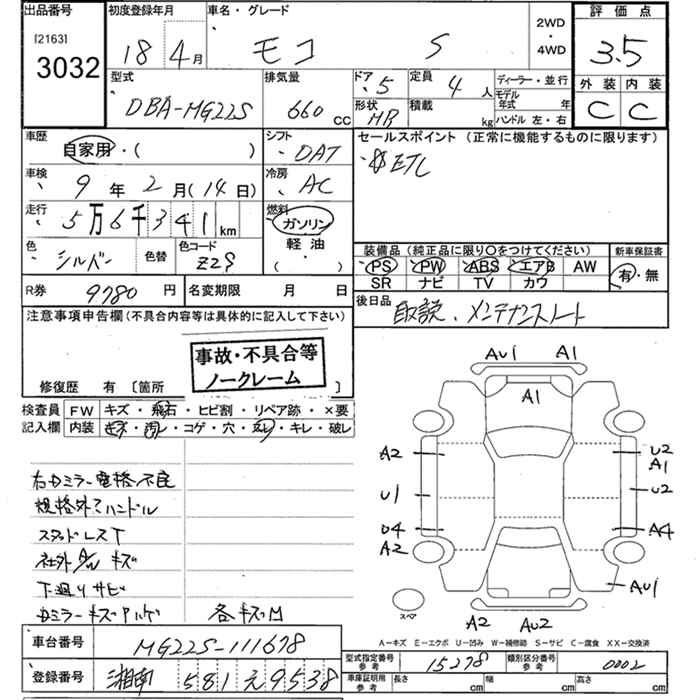 出品番号 初度登録年月 車名・グレード 2WD・4WD 評価点
[2163]
3032 18 4月 モコ S 3.5
型式 排気量 ドア 5 定員 4人 ディーラー・並行 外装 内装
DBA-MG22S 660 cc 形状 HB 積載 kg モデル年式 年 C C
ハンドル 左・右
車歴 自家用・( ) シフト DAT セールスポイント (正常に機能するものに限ります)
車検 9年 2月(14日) 冷房 AC ETC
走行 5万6千341km 燃料 ガソリン
軽油
( )
色 シルバー 色替 色コード Z2S
装備品(純正品に限り○をつけてください) 新車保証書
PS PW ABS エアB AW 有・無
SR ナビ TV カワ
R券 9780円 名変期限 月 日 後日品 取説、メンテナンスノート
注意事項申告欄(不具合内容等は具体的に記入して下さい)
事故・不具合等
ノークレーム
修復歴 有 〔箇所
検査員 FW キズ・飛石・ヒビ割・リペア跡・×要
記入欄 内装 キズ・汚レ・コゲ・穴・ヌレ・キレ・破レ
右ドミラー電格不良
規格外ハンドル
スタッドレスT
社外AW キズ
下廻りサビ
ドミラーキズ 各キズM
AU1 A1
A1
A2 U2
A1
U1 U2
U4 A4
A2
AU1
A2 AU2
スペア
A－キズ E－エクボ U－凹み W－補修跡 S－サビ C－腐食 XX－交換済
車台番号 MG22S-111678
型式指定番号 参考 15278 類別区分番号 参考 0002
登録番号 湘南 581 え 9538
車庫証明用 参考 長さ cm 幅 cm 高さ cm